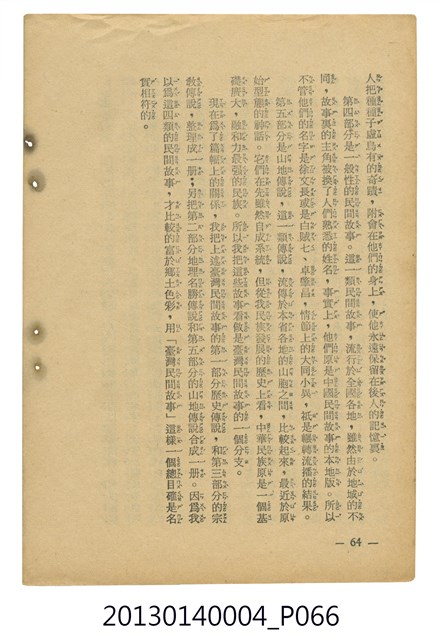 人把種種子虛烏有的奇蹟，附會在他們的身上，使他永遠保留在後人的記憶裏。
第四部分是一般性的民間故事。這一類民間故事，流行於全國各地，雖然由於地域的不
同，故事裏的主角被換了人們熟悉的姓名，事實上，他們原是中國民間故事的本地版。所以
不管他們的名字是徐文長或是白賊七、卓肇昌，情節上的大同小異，祇是輾轉流播的結果。
第五部分是山地傳說，這一類傳說，流傳於本省各地的山胞之間，比較起來，最近於原
始型態的神話。它們在先雖然自成系統，但從我民族發展的歷史上看，中華民族原是一個基
礎廣大，融和力最强的民族。所以我把這些故事看做是臺灣民間故事的一個分支。
現在爲了篇幅上的關係，我把上述臺灣民間故事的第一部分歷史傳說，和第三部分的宗
教傳說，整理成一册；另把第二部分地理名勝傳說和第五部分的山地傳說合成一册。因爲我
以爲這四類的民間故事，才比較的富於鄉土色彩，用「臺灣民間故事」這樣一個總目確是名
實相符的。
— 64 —
20130140004_P066